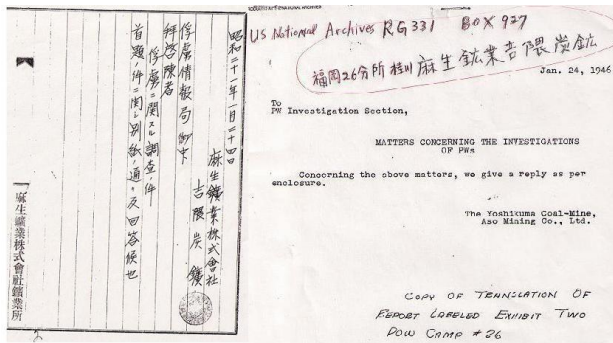 昭和二十一年一月二十四日
麻生鑛業株式會社
吉隈炭鑛
俘虜情報局 御中
拝啓陳者
俘虜ニ関スル調査ノ件
首題ノ件ニ関シ別紙ノ通リ及回答候也
麻生鑛業株式會社鑛業所
US National Archives RG331 BOX 927
福岡26分所 桂川 麻生鉱業吉隈炭鉱
Jan. 24, 1946
To
PW Investigation Section,
MATTERS CONCERNING THE INVESTIGATIONS
OF PWs
Concerning the above matters, we give a reply as per
enclosure.
The Yoshikuma Coal-Mine,
Aso Mining Co., Ltd.
COPY OF TRANSLATION OF
REPORT LABELED EXHIBIT TWO
POW CAMP #26